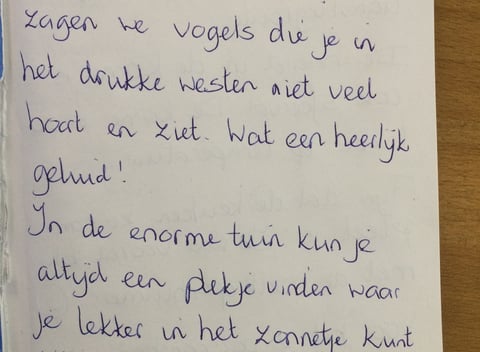 zagen we vogels die je in
het drukke westen niet veel
hoort en ziet. Wat een heerlijk
geluid!
In de enorme tuin kun je
altijd een plekje vinden waar
je lekker in het zonnetje kunt